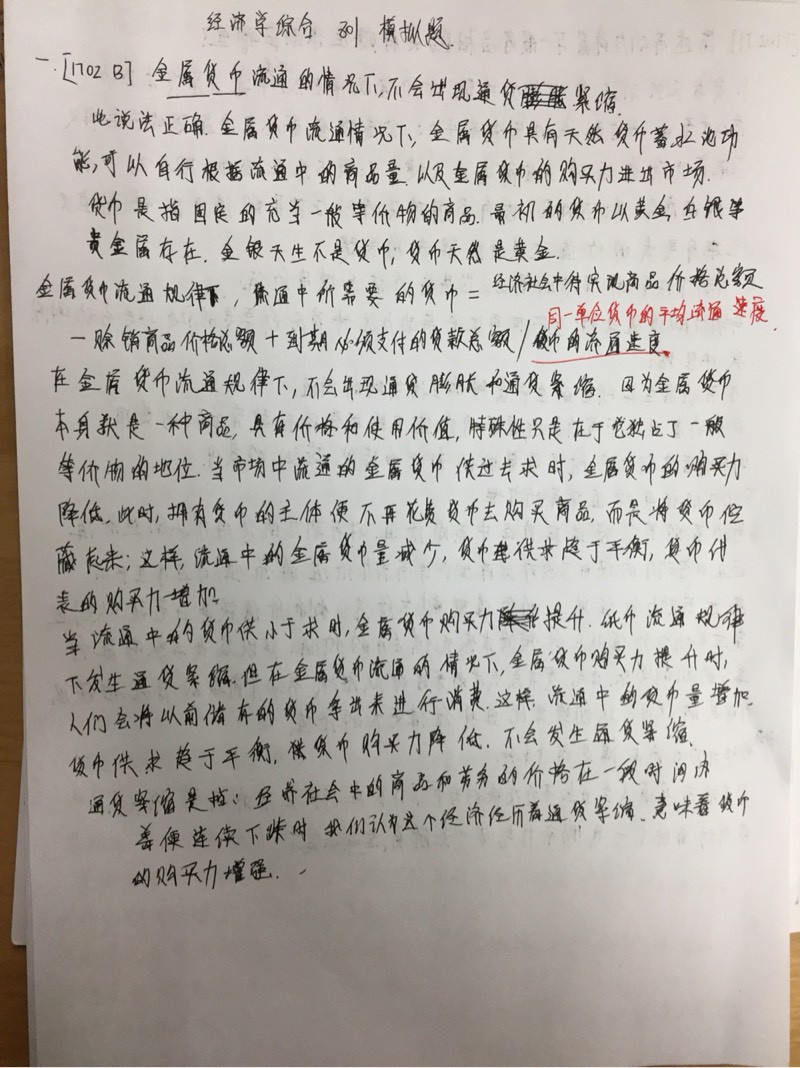 经济学综合 801 模拟题.
一.[1702 B] 金属货币流通的情况下,不会出现通货紧缩.
此说法正确. 金属货币流通情况下, 金属货币具有天然货币蓄水池功
能,可以自行根据流通中的商品量以及金属货币的购买力进出市场.
货币是指固定的充当一般等价物的商品. 最初的货币以黄金,白银等
贵金属存在. 金银天生不是货币, 货币天然是黄金.
金属货币流通规律下, 流通中所需要的货币 = 经济社会中待实现商品价格总额
同一单位货币的平均流通速度.
－赊销商品价格总额＋到期必须支付的货款总额/货币的流通速度.
在金属货币流通规律下, 不会出现通货膨胀和通货紧缩. 因为金属货币
本身就是一种商品, 具有价格和使用价值, 特殊性只是在于它独占了一般
等价物的地位. 当市场中流通的金属货币供过去求时, 金属货币的购买力
降低. 此时, 拥有货币的主体便不再花费货币去购买商品, 而是将货币
藏起来; 这样, 流通中的金属货币量减少, 货币供求趋于平衡, 货币
的购买力增加.
当流通中的货币供小于求时, 金属货币购买力提升. 纸币流通规律
下发生通货紧缩. 但在金属货币流通的情况下, 金属货币购买力提升时,
人们会将以前储存的货币拿出来进行消费. 这样, 流通中的货币量增加.
货币供求趋于平衡, 货币购买力降低. 不会发生通货紧缩.
通货紧缩是指: 经济社会中的商品和劳务的价格在一段时间内
普便连续下跌时 我们认为这个经济经历着通货紧缩. 意味着货币
的购买力增强.